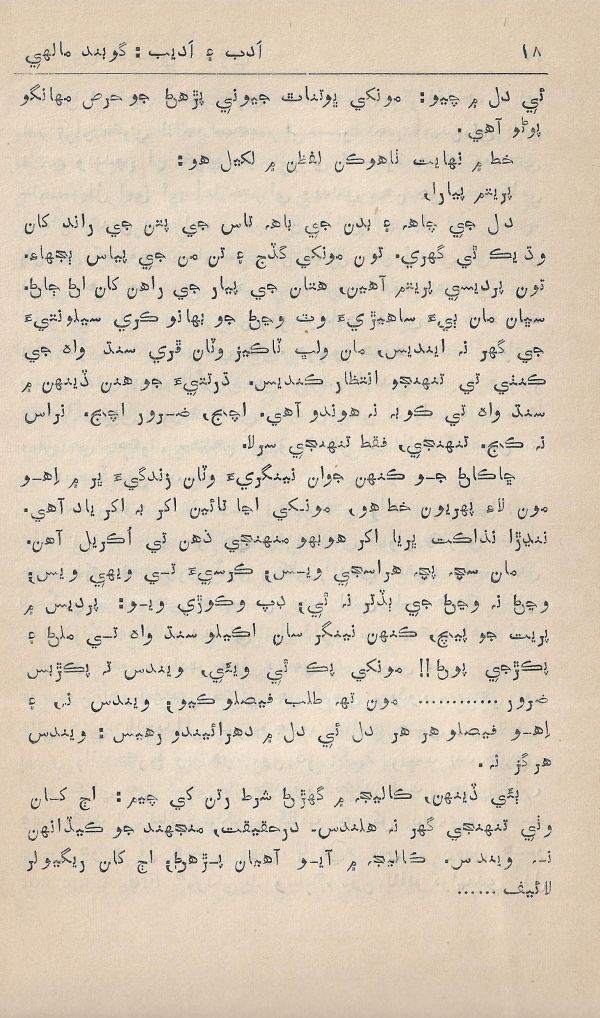 ١٨ اَدب ۽ اَديب : گوبند مالهي
ئي دل ۾ چيو: مونکي يوتنات جيوني پڙهڻ جو حرص مهانگو
پوڻو آهي.
خط ۾ نهايت ٺاهوڪن لفظن ۾ لکيل هو:
پريتم پيارا،
دل جي چاهہ ۽ بدن جي باهہ تاس جي پتن جي راند کان
وڌيڪ ٿي گهري. تون مونکي گڏج ۽ تن من جي پياس ٻجهاءِ.
تون پرديسي پريتم آهين، هتان جي پيار جي راهن کان اڻ ڄاڻ.
سڀان مان ٻيءَ ساهيڙيءَ وٽ وڃڻ جو بهانو ڪري سيلونتيءَ
جي گهر نہ اينديس، مان ولب ٽاڪيز وٽان ڦري سنڌ واہ جي
ڪنڌي تي تنهنجو انتظار ڪنديس. ڌرتتيءَ جو هنن ڏينهن ۾
سنڌ واہ تي ڪو بہ نہ هوندو آهي. اچج، ضرور اچج. نراس
نہ ڪج. تنهنجي، فقط تنهنجي سرلا.
ڇاڪاڻ جو ڪنهن جوان نينگريءَ وٽان زندگيءَ ڀر ۾ اِهو
مون لاءِ پهريون خط هو، مونکي اڃا تائين اکر بہ اکر ياد آهي.
ننڍڙا نذاڪت ڀريا اکر هوبهو منهنجي ذهن تي اُڪريل آهن.
مان سچ پچ هراسجي ويس؛ ڪرسيءَ تي ويهي ويس؛
وڃڻ نہ وڃڻ جي ٻڏتر نہ ٿي؛ ڊپ وڪوڙي ويو: پرديس ۾
پريت جو پيچ، ڪنهن نينگر سان اڪيلو سنڌ واہ تي ملڻ ۽
پڪڙجي پوڻ!! مونکي پڪ ٿي ويئي، ويندس تہ پڪڙبس
ضرور ............ مون تهہ طلب فيصلو ڪيو؛ ويندس نہ، ۽
اِهو فيصلو هر هر دل ئي دل ۾ دهرائيندو رهيس : ويندس
هرگز نہ.
ٻئي ڏينهن، ڪاليجہ ۾ گهڙڻ شرط رتن کي چيم: اڄ کان
وٺي تنهنجي گهر نہ هلندس. درحقيقت، منجهند جو ڪيڏانهن
نہ ويندس. ڪاليجہ ۾ آيو آهيان پڙهڻ، اڄ کان ريگيولر
لائيف ......